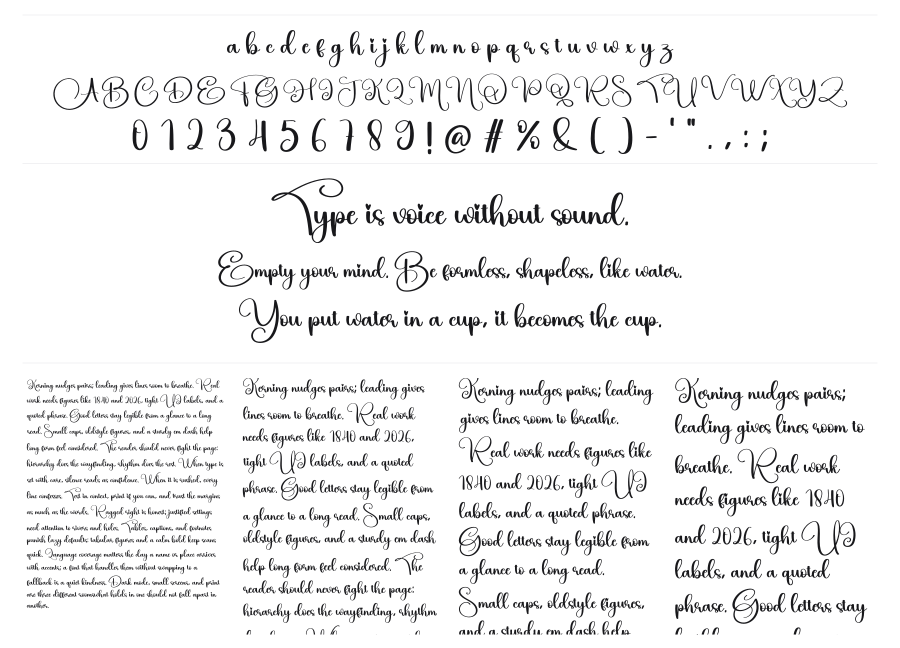 a b c d e f g h i j k l m n o p q r s t u v w x y z
A B C D E F G H I J K L M N O P Q R S T U V W X Y Z
0 1 2 3 4 5 6 7 8 9 ! @ # % & ( ) - ' " . , : ;
Type is voice without sound.
Empty your mind. Be formless, shapeless, like water.
You put water in a cup, it becomes the cup.
Kerning nudges pairs; leading gives lines room to breathe. Real
work needs figures like 1840 and 2026, tight UI labels, and a
quoted phrase. Good letters stay legible from a glance to a long
read. Small caps, oldstyle figures, and a sturdy em dash help
long form feel considered. The reader should never fight the page:
hierarchy does the wayfinding, rhythm does the rest. When type is
set with care, silence reads as confidence. When it is rushed, every
line confesses. Test in context, print if you can, and trust the margins
as much as the words. Ragged right is honest; justified settings
need attention to rivers and holes. Tables, captions, and footnotes
punish lazy defaults; tabular figures and a calm bold keep scans
quick. Language coverage matters the day a name or place arrives
with accents; a font that handles them without swapping to a
fallback is a quiet kindness. Dark mode, small screens, and print
are three different rooms; what holds in one should not fall apart in
another.
Kerning nudges pairs; leading gives
lines room to breathe. Real work
needs figures like 1840 and 2026,
tight UI labels, and a quoted
phrase. Good letters stay legible from
a glance to a long read. Small caps,
oldstyle figures, and a sturdy em dash
help long form feel considered. The
reader should never fight the page:
hierarchy does the wayfinding, rhythm
Kerning nudges pairs; leading
gives lines room to breathe.
Real work needs figures like
1840 and 2026, tight UI
labels, and a quoted phrase.
Good letters stay legible from
a glance to a long read.
Small caps, oldstyle figures,
and a sturdy em dash help
Kerning nudges pairs;
leading gives lines room to
breathe. Real work
needs figures like 1840
and 2026, tight UI
labels, and a quoted
phrase. Good letters stay